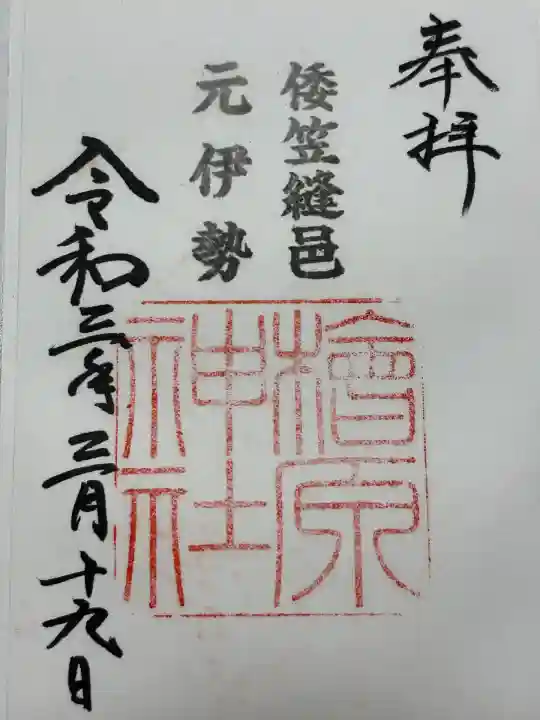 奉拝
倭笠縫邑
元伊勢
檜原
神社
令和三年三月十九日